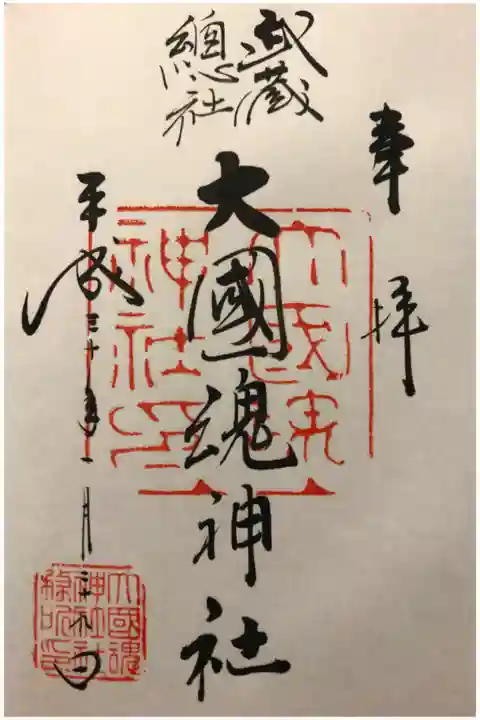 奉拝
武蔵
總社
大國魂神社
平成三十年一月二十九日
大國魂
神社印
大國魂
神社